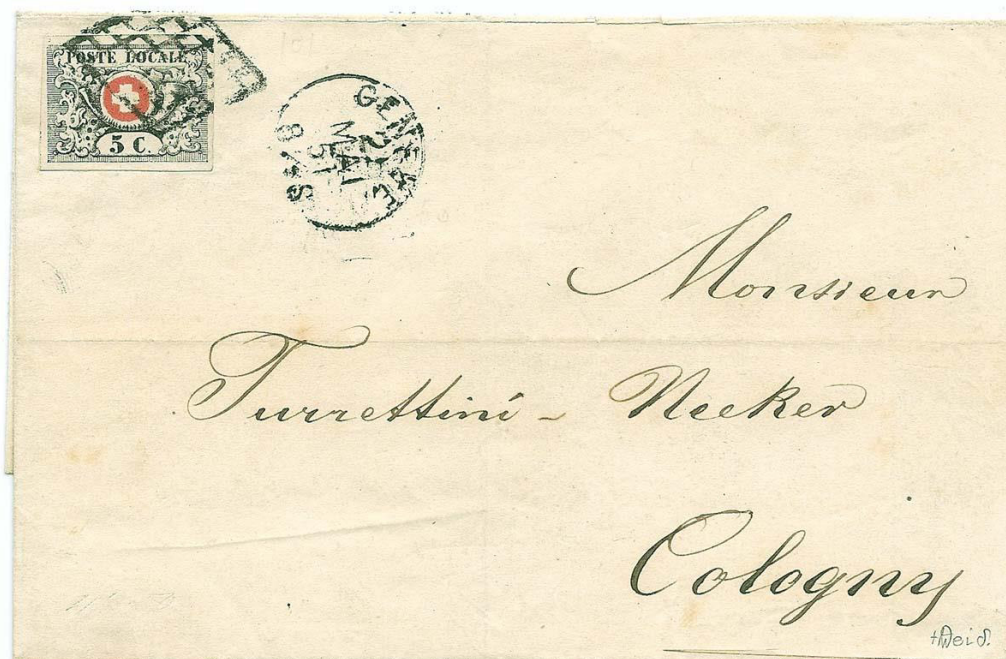 POSTE LOCALE
5 C.
GENEVE
MAI
51
Monsieur
Turrettini - Necker
Cologny